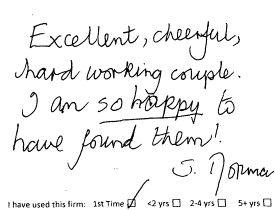 Excellent, cheerful,
hard working couple.
I am so happy to
have found them!
S. Norman
I have used this firm: 1st Time ☑ <2 yrs ☐ 2-4 yrs ☐ 5+ yrs ☐